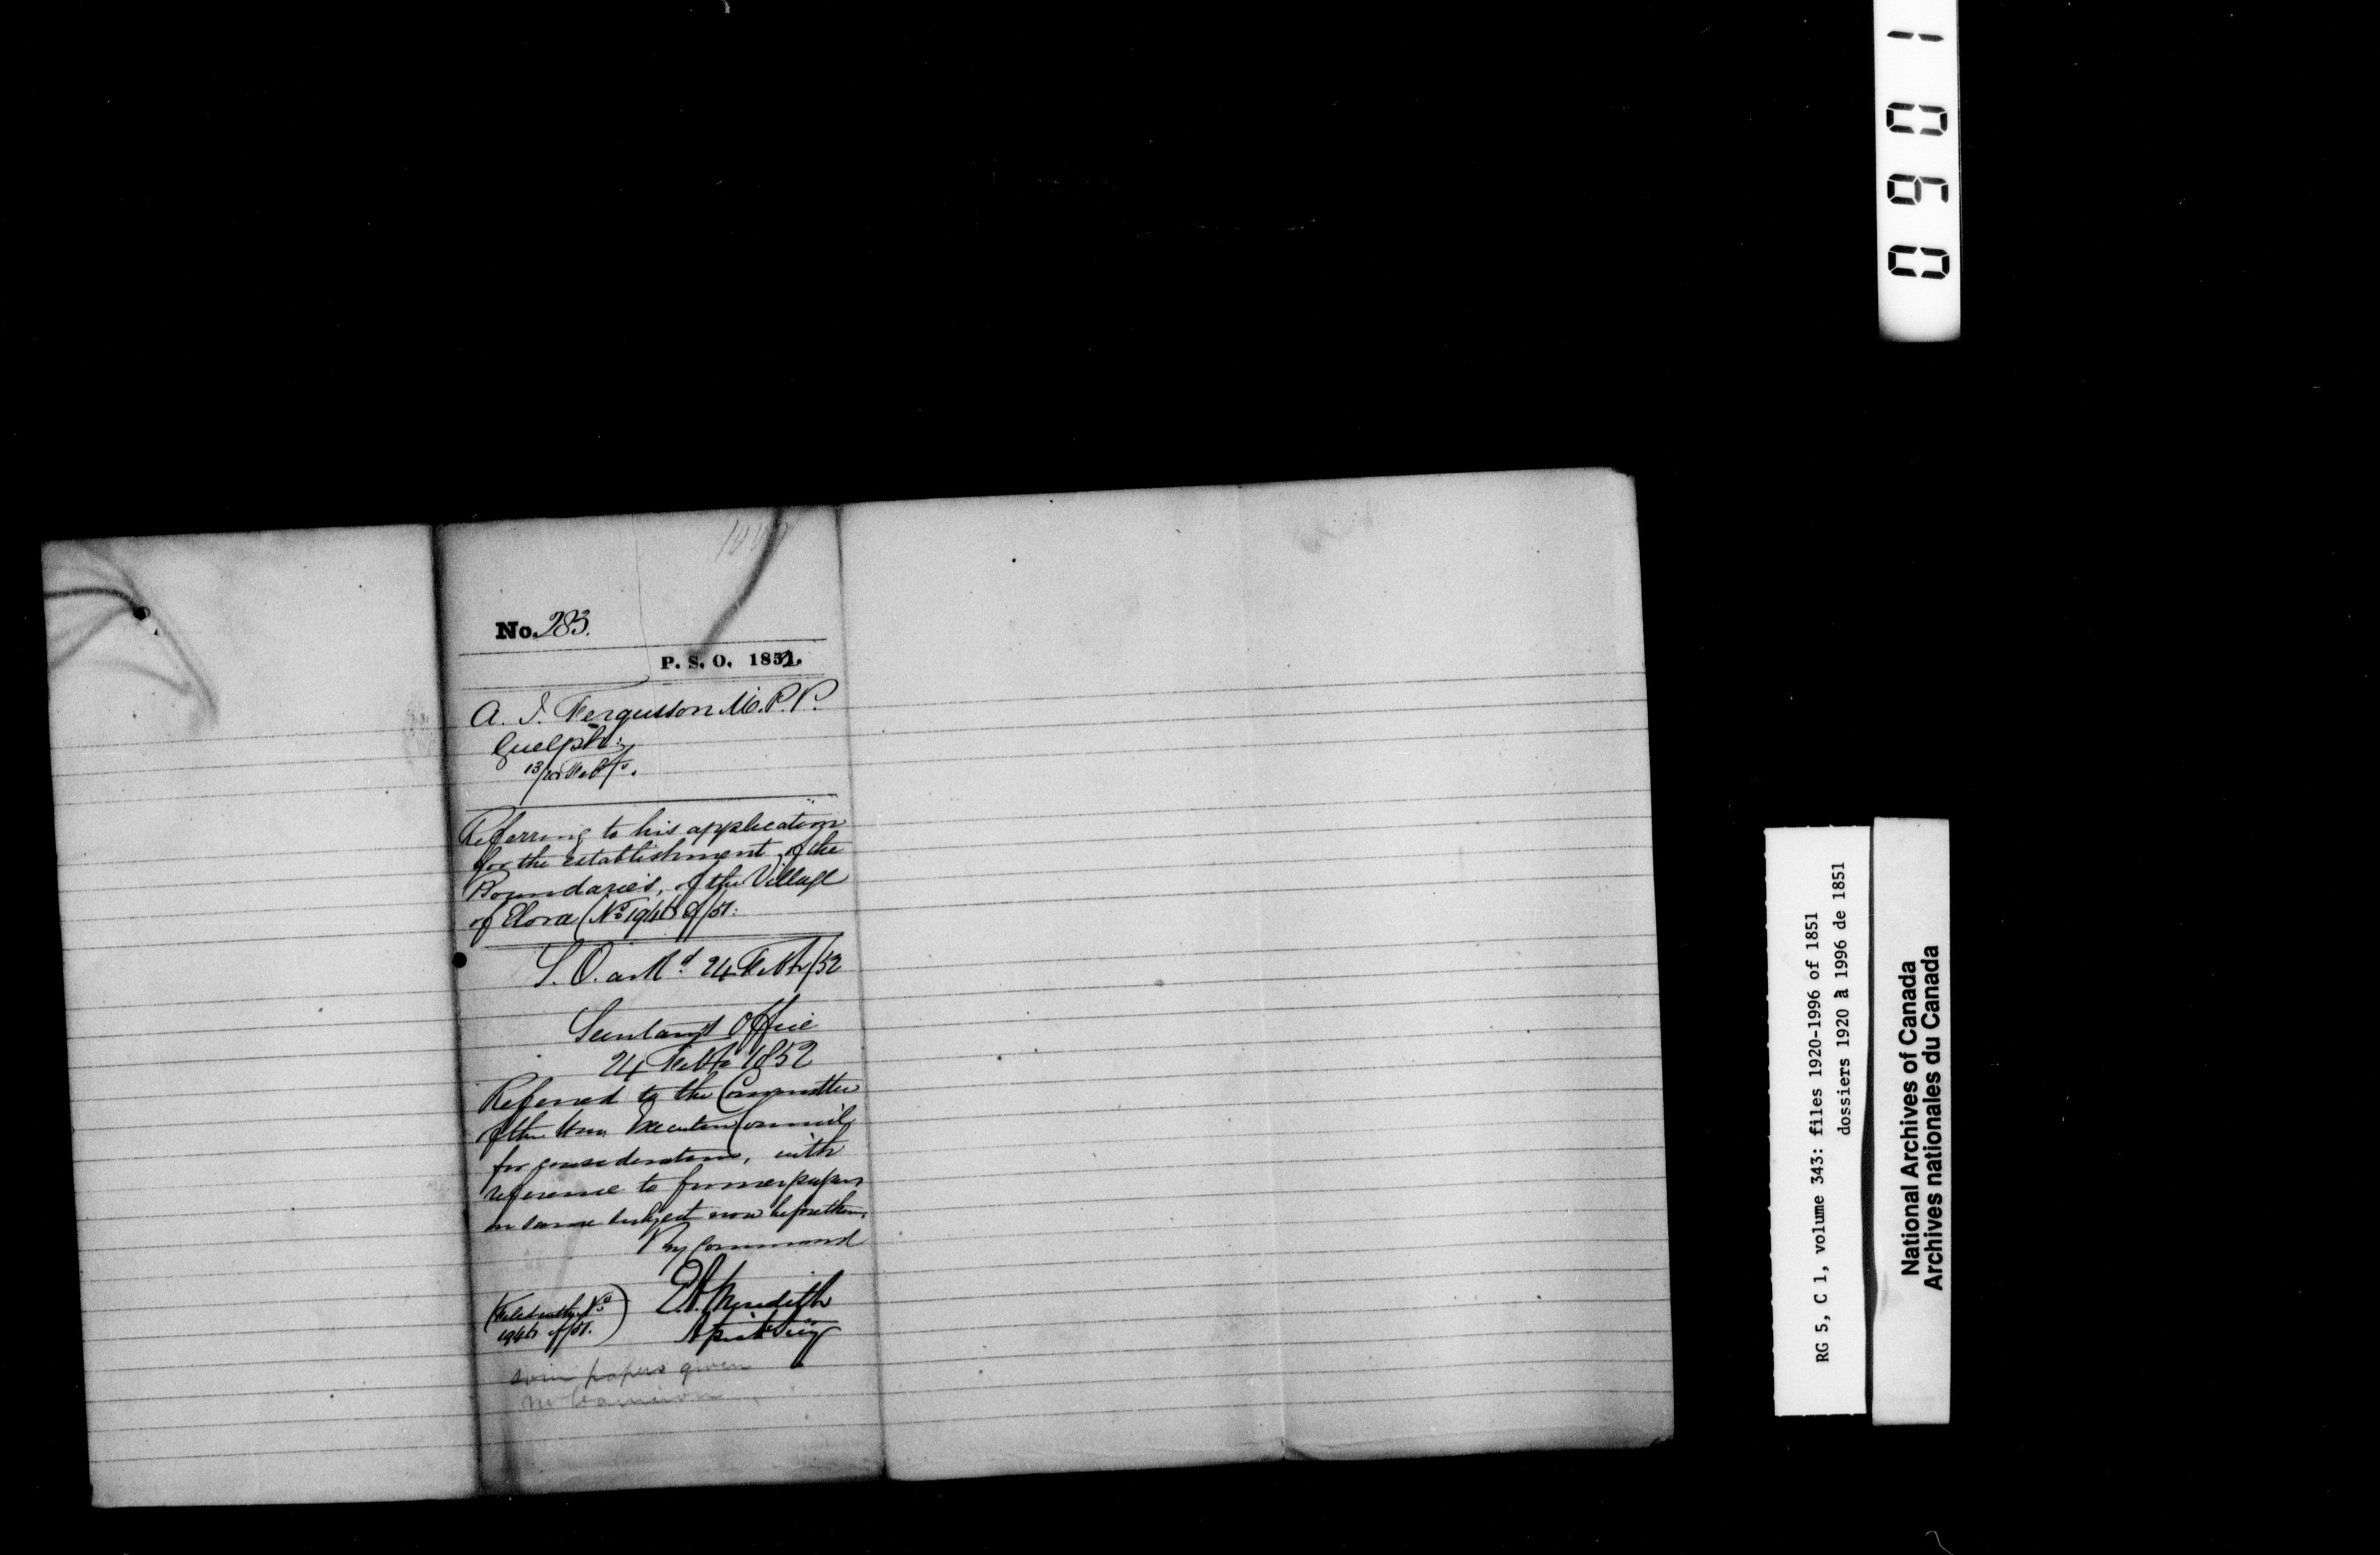 No. 283.
P. S. O. 1852.
A. J. Fergusson M.P.P.
Guelph:
13/20 Feby.
Referring to his application
for the establishment of the
Boundaries, of the Village
of Elora (No 1946 of/51.
S. O. ackd. 24 Feby/52
Secretary's Office
24 Feby 1852
Referred to the Committee
of the Hon Executive Council
for consideration, with
reference to former papers
on same subject now before them.
By Command
E A Meredith
Asst Secy
(Filed with No
1946 of/51.)
papers given
Mr Cameron
0901
RG 5, C 1, volume 343: files 1920-1996 of 1851
dossiers 1920 à 1996 de 1851
National Archives of Canada
Archives nationales du Canada